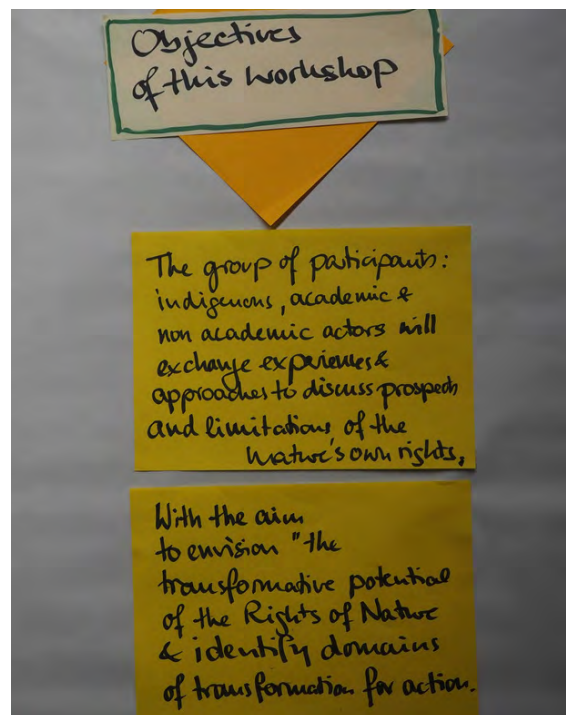 Objectives
of this workshop
The group of participants:
indigenous, academic &
non academic actors will
exchange experiences &
approaches to discuss prospects
and limitations of the
Nature's own rights,
With the aim
to envision "the
transformative potential
of the Rights of Nature
& identify domains
of transformation for action.